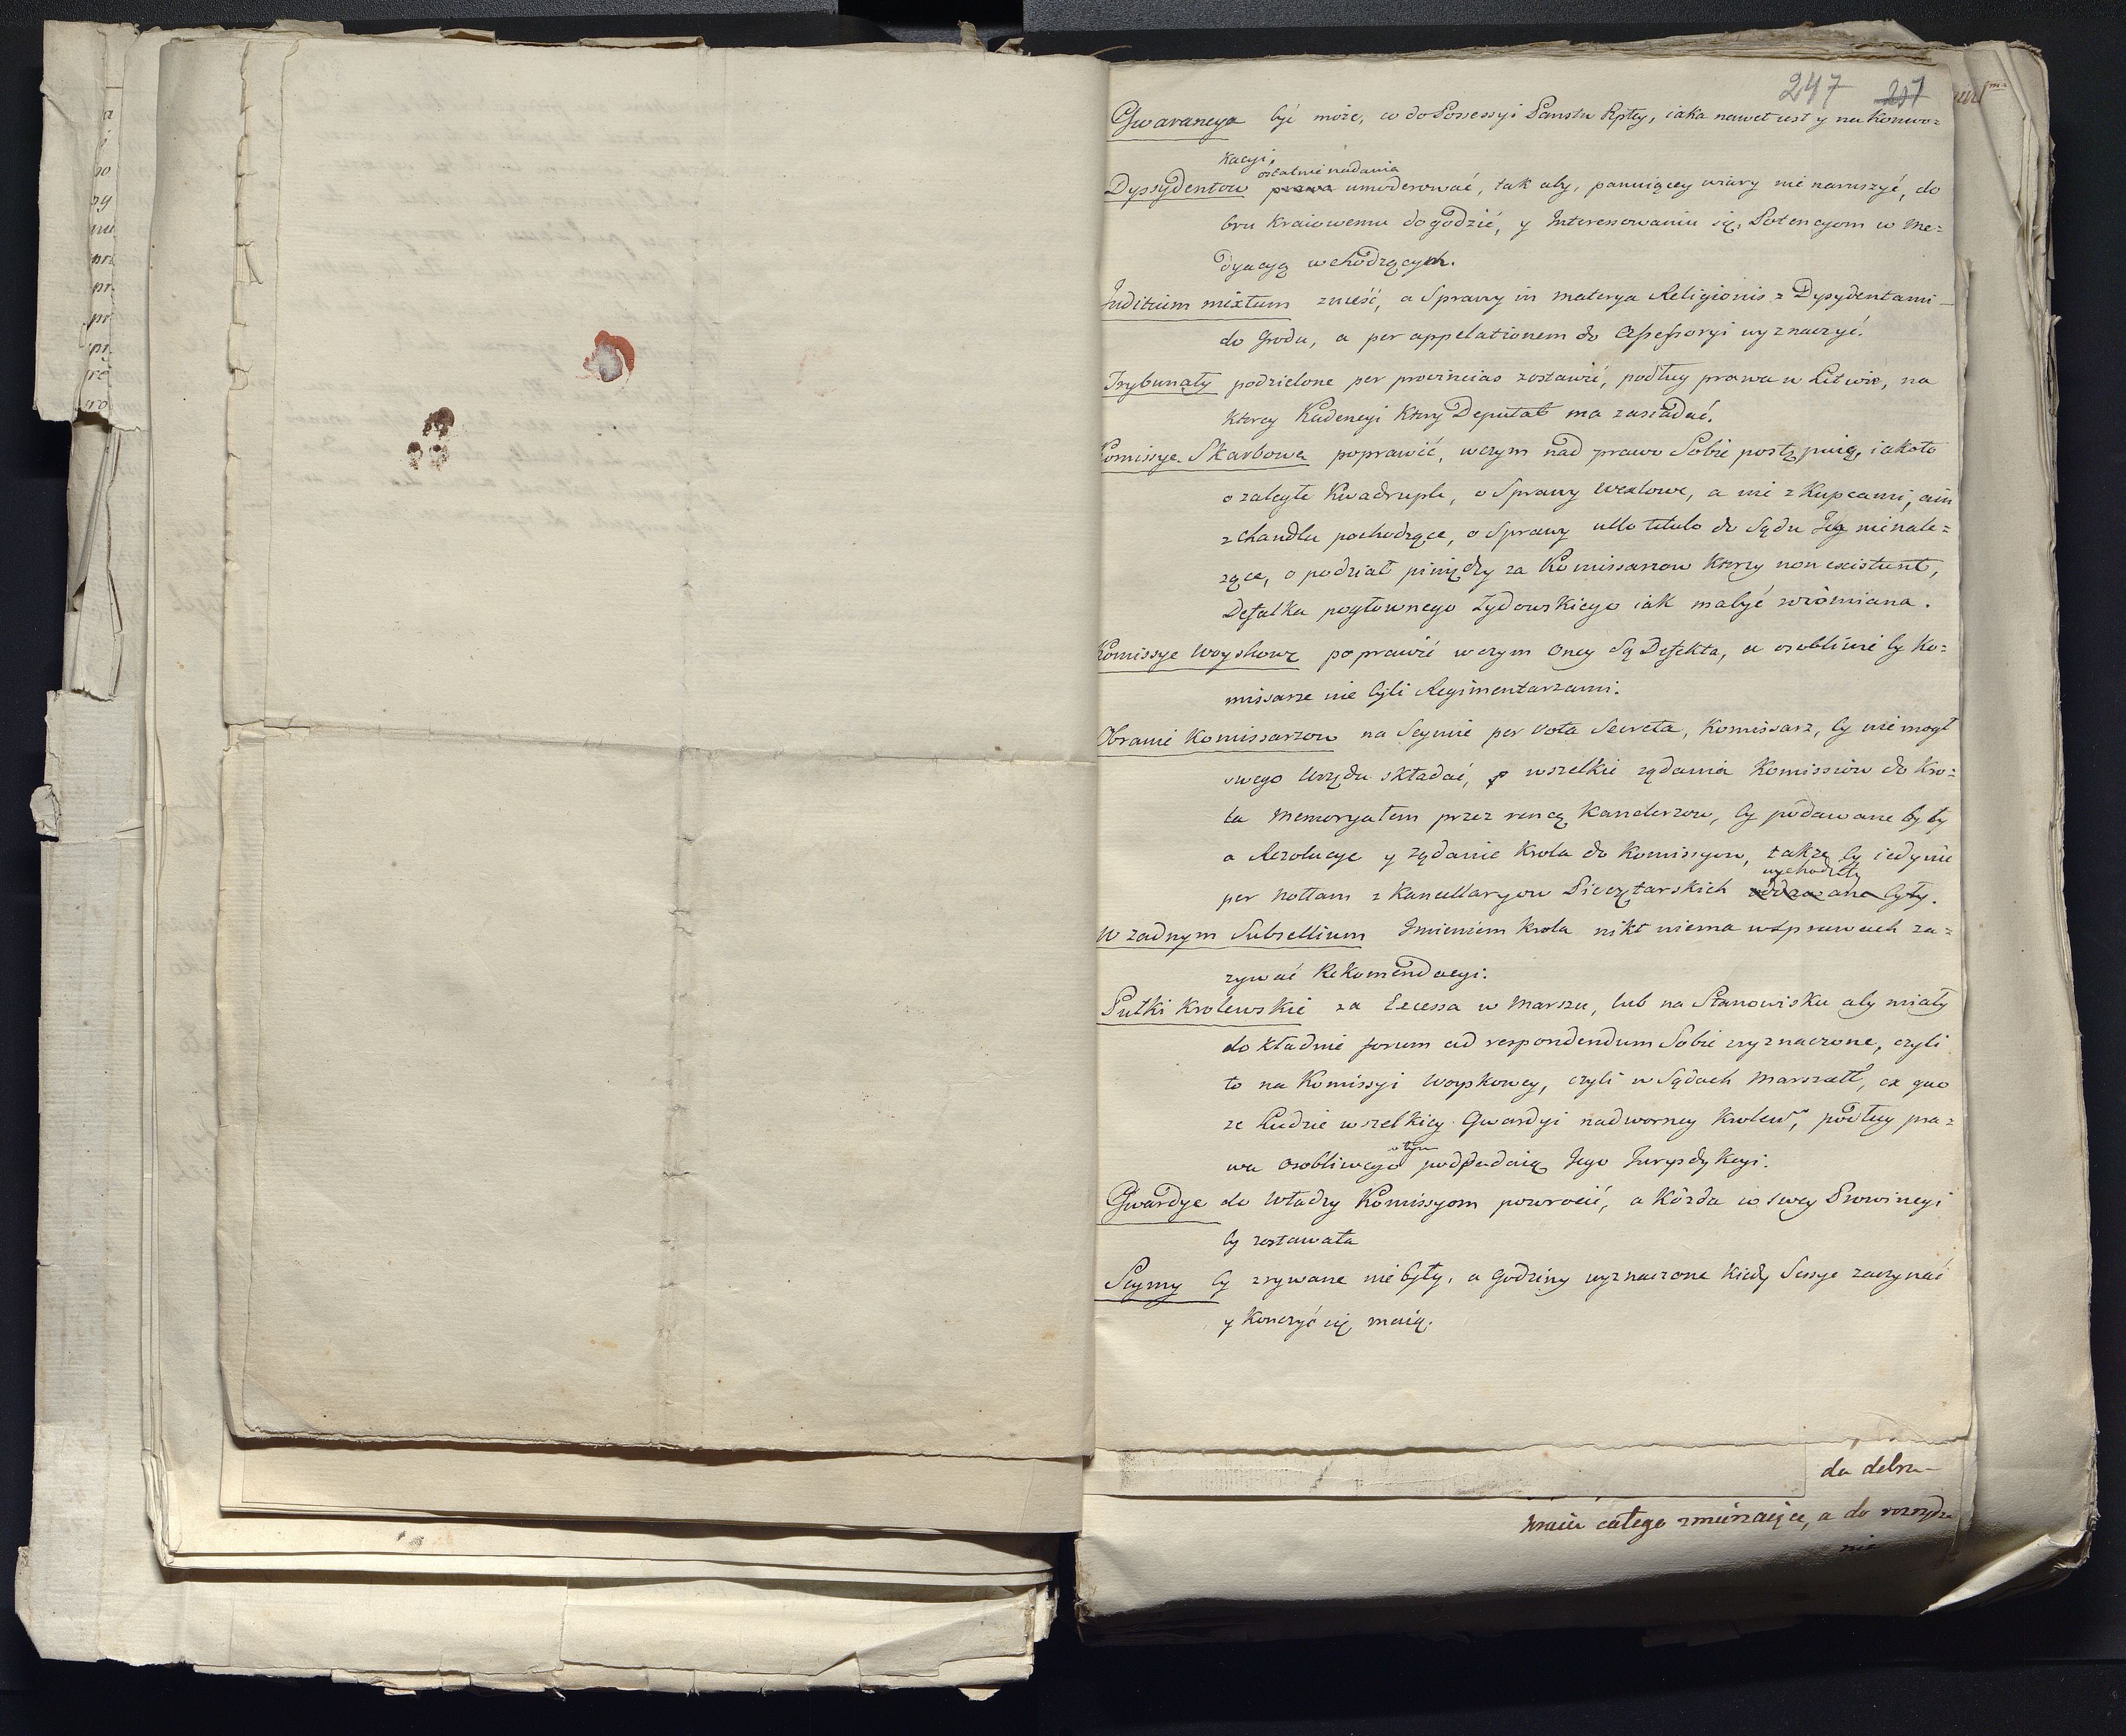 247 257
Gwarancya być może, co do Possessyi Panstw Rptey, iaka nawet iest y na Konwo=
kacyi,
ostatnie nadania
Dyssydentow prawa umoderować, tak aby, panuiącey wiary nie naruszyć, do
bru Kraiowemu dogodzić, y Interessowaniu się, Potencyom w Me=
dyacyą wchodzącym.
Juditium mixtum znieść, a Sprawy in materya Religionis z Dysydentami
do Grodu, a per appelationem do Assessoryi wyznaczyć.
Trybunały podzielone per provincias zostawić, podług prawa w Litwie, na
Ktorey Kadencyi Ktory Deputat ma zasiadać.
Komissye Skarbowe poprawić, w czym nad prawo Sobie postępuią, iakoto
o zaległe Kwadruple, o Sprawy wexlowe, a nie z Kupcami, ani
z chandlu pochodzące, o Sprawy ullo titulo do Sądu Jey nienale=
zące, o podział pieniędzy za Komissarzow Ktorzy non existunt,
Defalka pogłownego Zydowskiego iak ma być
Komissye Woyskowe poprawić w czym Oney Są Defekta, a osobliwie by Ko=
missarze nie byli Regimentarzami.
Obranie Komissarzow na Seymie per vota Secreta, Komissarz, by nie mogł
swego Urzędu składać, y wszelkie ządania Komissiow do Kro=
la Memoryałem przez rencę Kanclerzow, by podawane były
a Rezolucye y ządanie Krola do Komissyow, takze by iedynie
wychodziły
per nottam z Kancellaryow Pieczętarskich oddawane były.
W zadnym Subsellium Imieniem Krola nikt niema w sprawach za=
zywać Rekomendacyi.
Pułki Krolewskie za Excessa w Marszu, lub na Stanowisku aby miały
do kładnie forum ad respondendum Sobie wyznaczone, czyli
to na Komissyi Woyskowey, czyli w Sądach Marszałł, ex quo
ze Ludzie wszelkiey Gwardyi nadworney Krolew, podług pra=
o tym
wa osobliwego podpadaią Jego Jurysdykcyi.
Gwardye do Władzy Komissyom powrocić, a Kozda w swey Prowincyi
by zostawała
Seymy by zrywane nie były, a godziny wyznaczone kiedy Sessye zaczynać
y Konczyć się maią.
da debra-
Kraiu całego zmierzaiące, a do rozrydze
nie